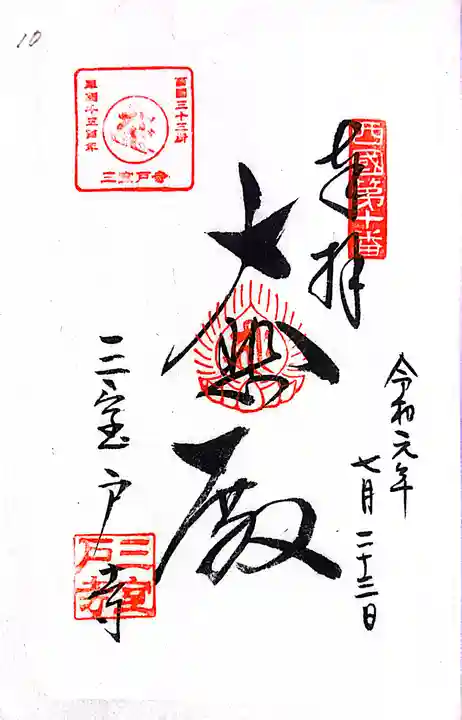 10
西國第十番
奉拝
令和元年
七月二十三日
大悲殿
西國三十三所
草創千三百年
三室戸寺
三室戸寺
三室戸寺